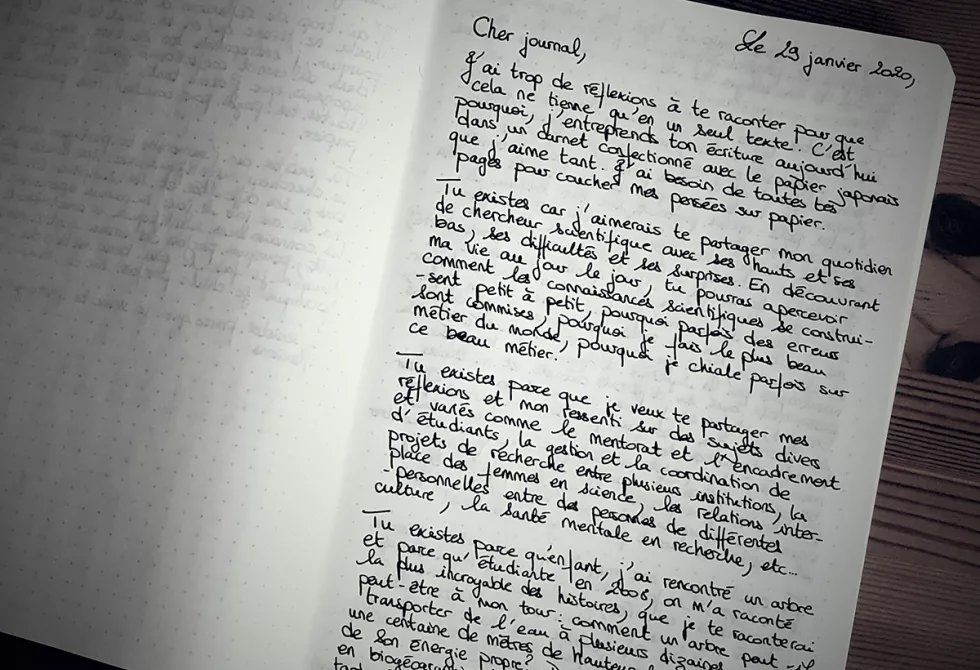 Le 29 janvier 2020,
Cher journal,
J'ai trop de réflexions à te raconter pour que
cela ne tienne qu'en un seul texte ! C'est
pourquoi, j'entreprends ton écriture aujourd'hui
dans un carnet confectionné avec le papier japonais
que j'aime tant. J'ai besoin de toutes tes
pages pour coucher mes pensées sur papier.
Tu existes car j'aimerais te partager mon quotidien
de chercheur scientifique avec ses hauts et ses
bas, ses difficultés et ses surprises. En découvrant
ma vie au jour le jour, tu pourras apercevoir
comment les connaissances scientifiques se construi-
-sent petit à petit, pourquoi parfois des erreurs
sont commises, pourquoi je fais le plus beau
métier du monde, pourquoi je chiale parfois sur
ce beau métier.
Tu existes parce que je veux te partager mes
réflexions et mon ressenti sur des sujets divers
et variés comme le mentorat et l'encadrement
d'étudiants, la gestion et la coordination de
projets de recherche entre plusieurs institutions, la
place des femmes en science, les relations inter-
-personnelles entre des personnes de différentes
culture, la santé mentale en recherche, etc...
Tu existes parce qu'enfant, j'ai rencontré un arbre
et parce qu'étudiante en 2006, on m'a raconté
la plus incroyable des histoires, que je te raconterai
peut-être à mon tour : comment un arbre peut-il
transporter de l'eau à plusieurs dizaines
une centaine de mètres de hauteur
de son énergie propre ?